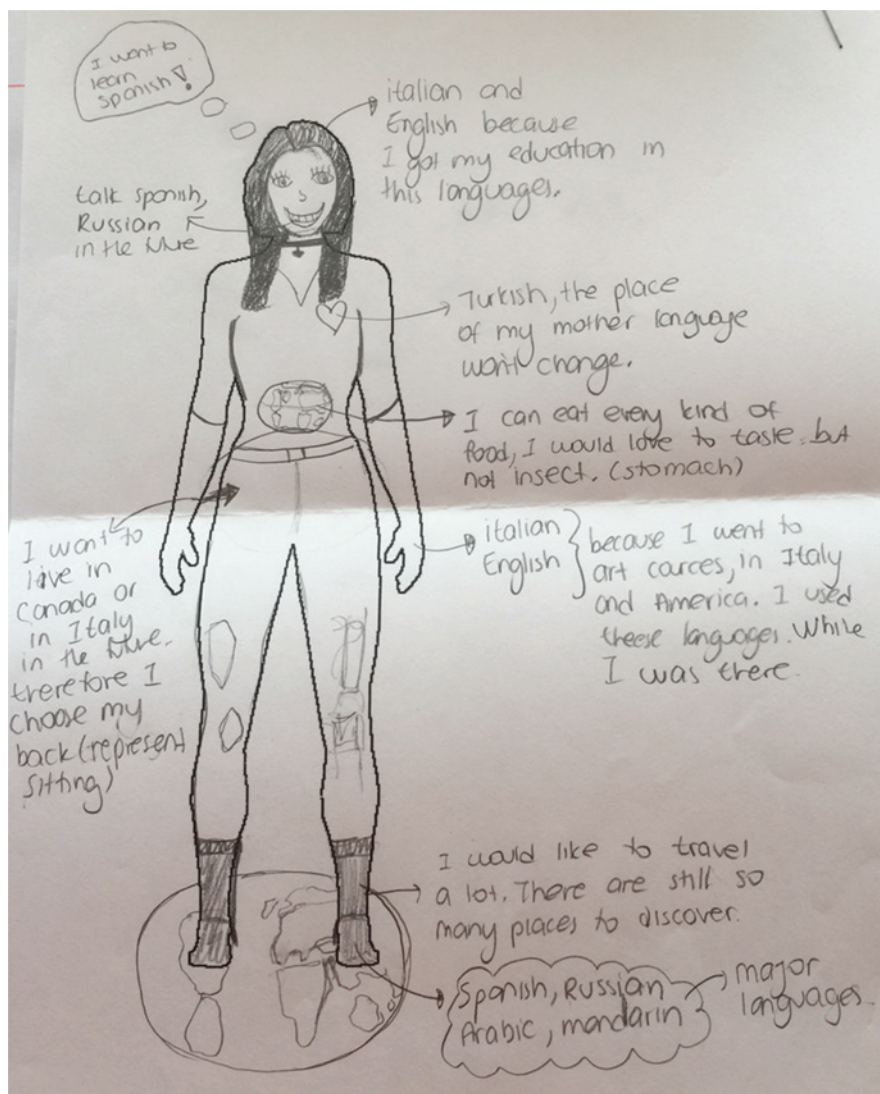 I want to
learn
Spanish!
italian and
English because
I got my education in
this languages.
talk spanish,
Russian
in the future
Turkish, the place
of my mother language
won't change.
I can eat every kind of
food, I would love to taste. but
not insect. (stomach)
I want to
live in
Canada or
in Italy
in the future.
therefore I
choose my
back (represent
sitting)
italian
English
because I went to
art cources, in Italy
and America. I used
theese languages. While
I was there.
I would like to travel
a lot. There are still so
many places to discover.
Spanish, Russian
Arabic, mandarin
major
languages.